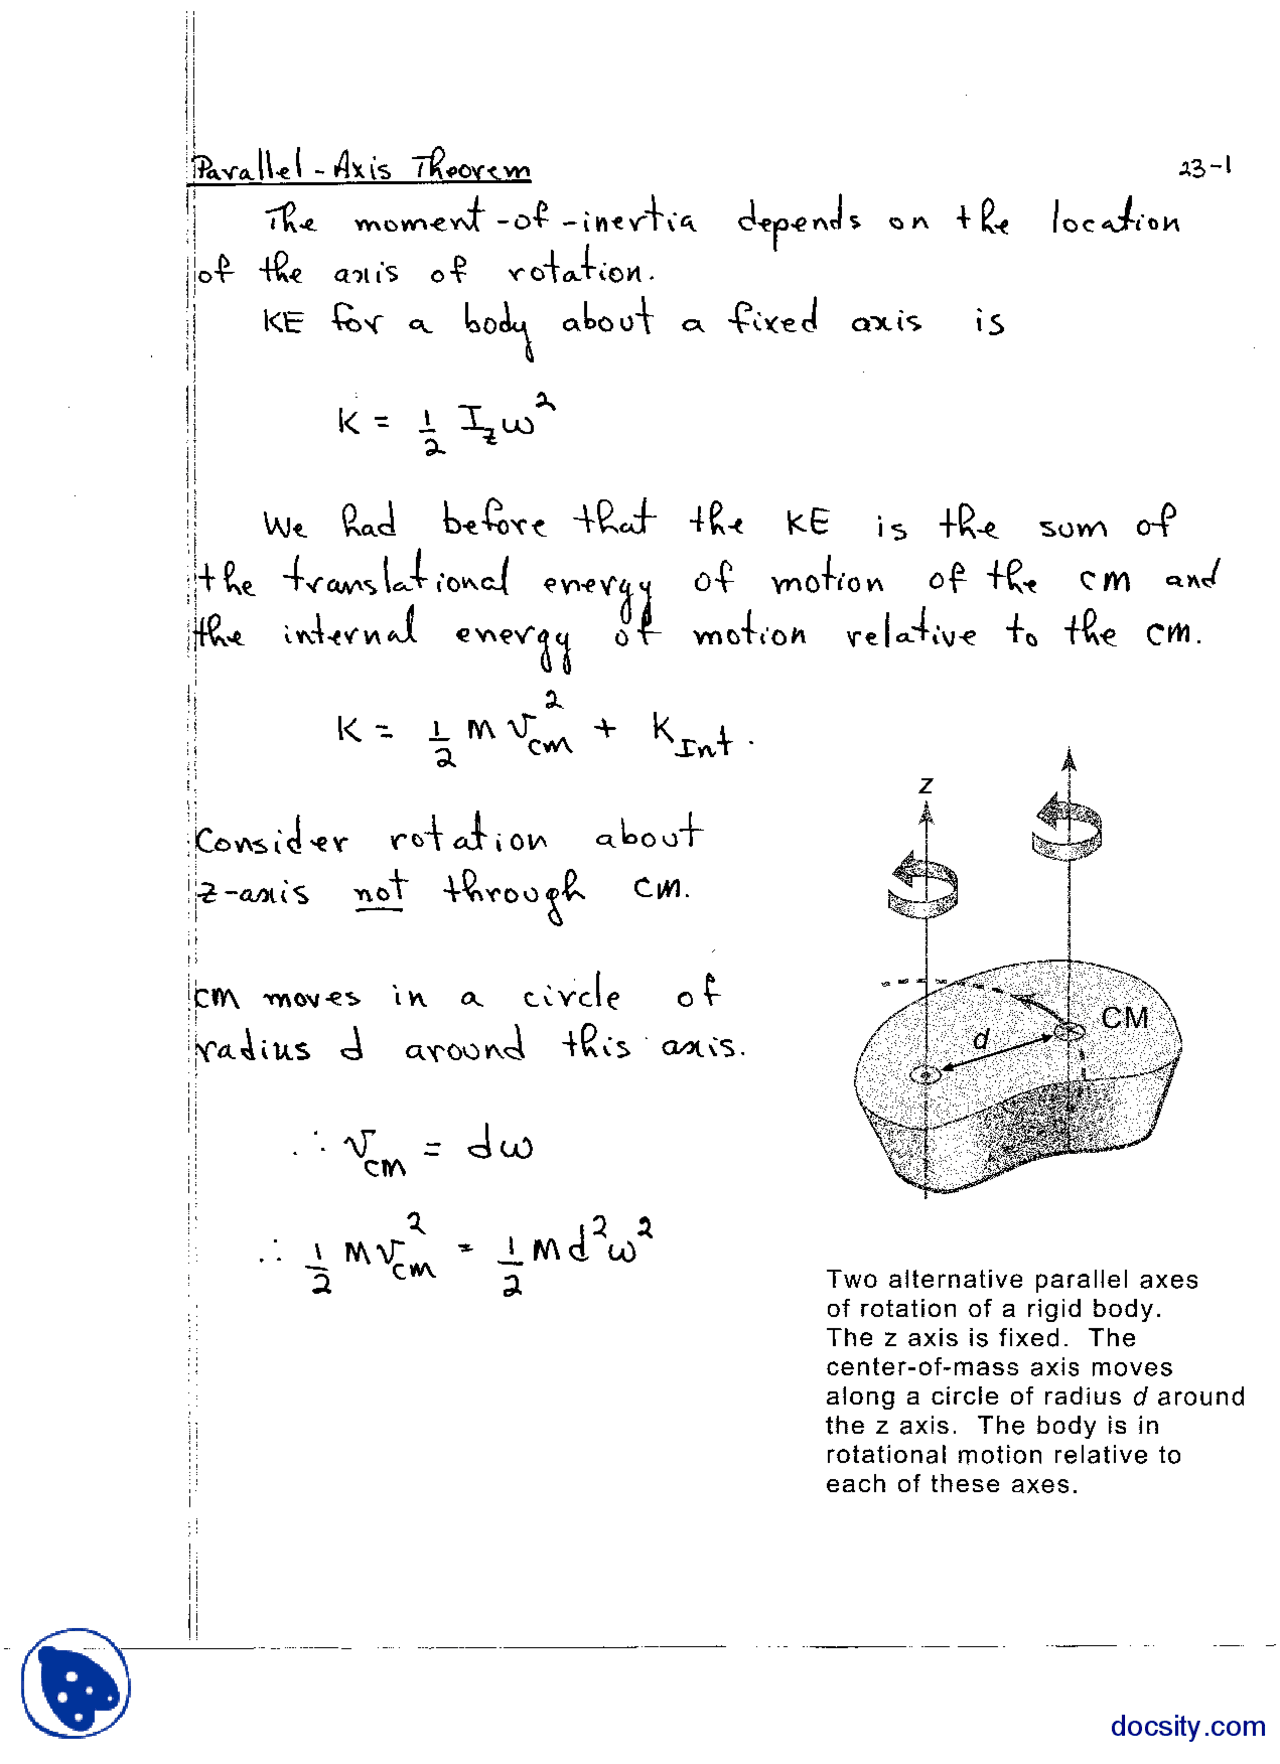 Parallel-Axis Theorem
23-1
The moment-of-inertia depends on the location
of the axis of rotation.
KE for a body about a fixed axis is
K = 1/2 I_z ω²
We had before that the KE is the sum of
the translational energy of motion of the cm and
the internal energy of motion relative to the cm.
K = 1/2 M v_cm² + K_Int.
Consider rotation about
z-axis not through cm.
cm moves in a circle of
radius d around this axis.
∴ v_cm = dω
∴ 1/2 M v_cm² = 1/2 M d²ω²
z
CM
d
Two alternative parallel axes
of rotation of a rigid body.
The z axis is fixed. The
center-of-mass axis moves
along a circle of radius d around
the z axis. The body is in
rotational motion relative to
each of these axes.
docsity.com